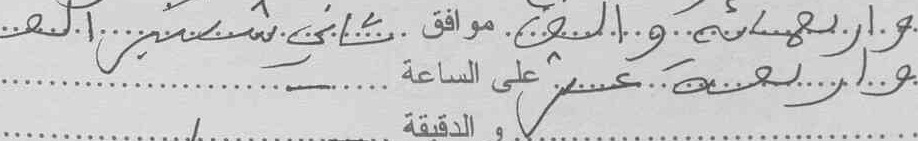 و اربعمائة و الف موافق ثاني شتنبر الف
و اربعة عشر على الساعة
و الدقيقة